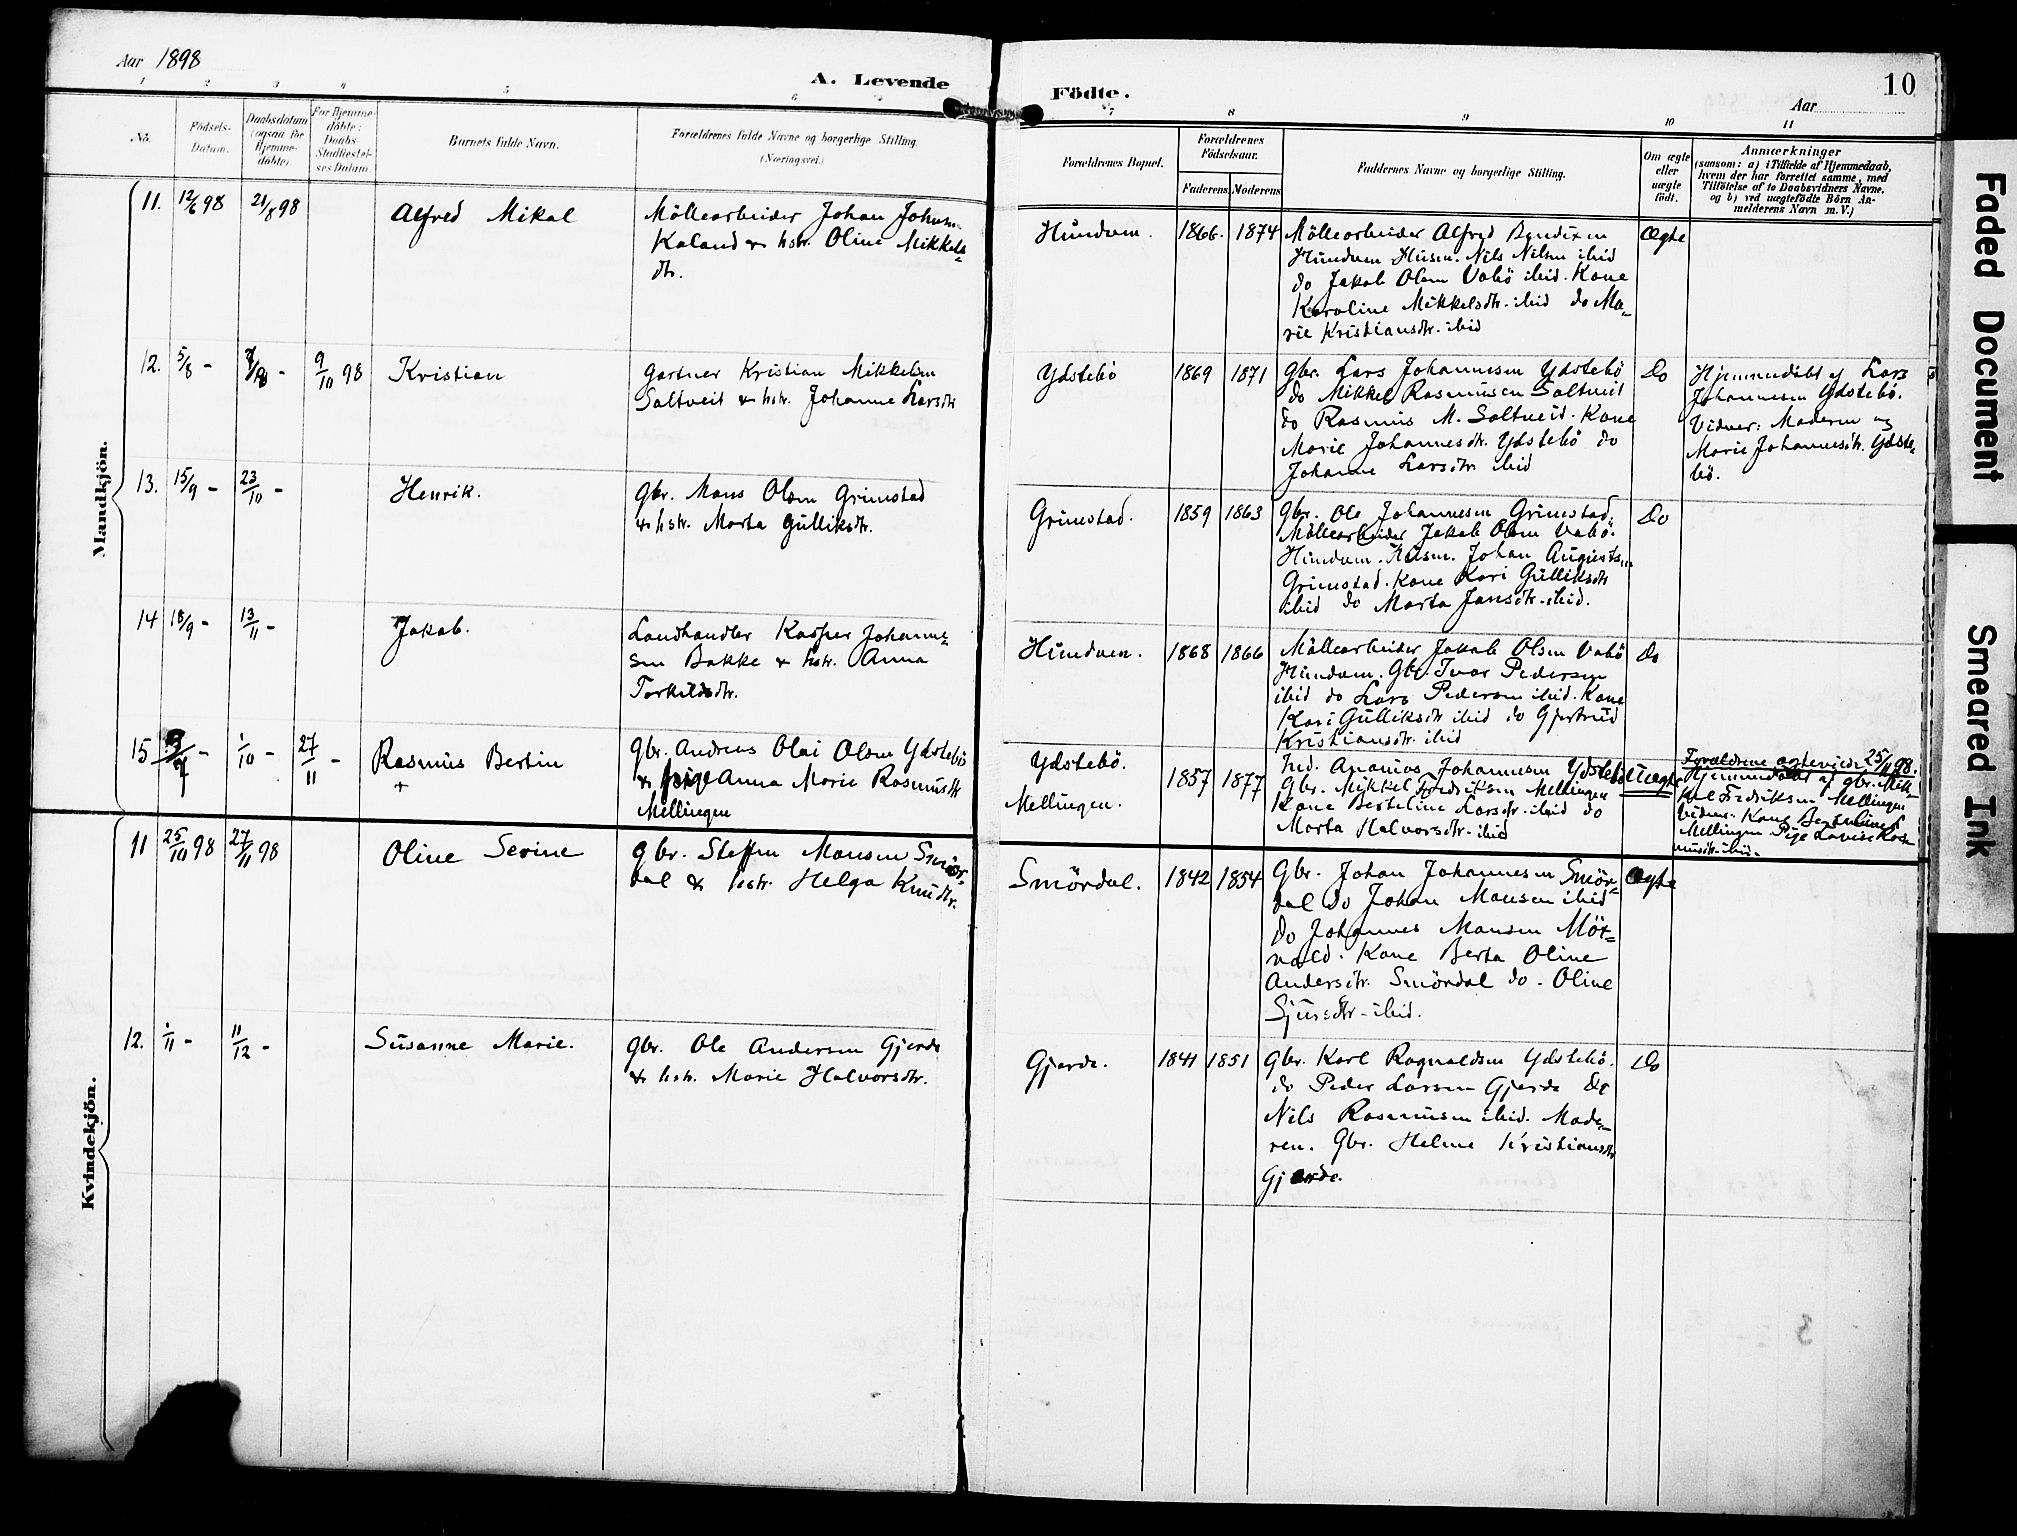 Aar 1898
A. Levende
1 2 3 4 5 6
No.
Födsels-
Datum.
Daabsdatum
(ogsaa for
Hjemme-
döbte).
For Hjemme-
döbte:
Daabs-
Stadfæstel-
ses Datum.
Barnets fulde Navn.
Forældrenes fulde Navne og borgerlige Stilling.
(Næringsvei.)
Mandkjön.
11. 12/6 98 21/8 98
Alfred Mikal
Möllearbeider Johan Johnsen
Kaland & hstr. Oline Mikkels-
dtr.
12. 5/8 -
9/10 98
Kristian
Gartner Kristian Mikkelsen
Saltveit & hstr. Johanne Larsdtr
13. 15/9 - 23/10 -
Henrik.
Gbr. Mons Olsen Grimstad
& hstr. Marta Gulliksdtr.
14 18/9 - 13/11 -
Jakob.
Landhandler Kasper Johanne-
sen Bakke & hstr. Anna
Torkildsdtr.
15
1/10 - 27/11 -
Rasmus Bertin
+
Gbr. Andreas Olai Olsen Ydstebö
& pige Anna Marie Rasmusdtr
Mellingen
Kvindekjön.
11 25/10 98 27/11 98
Oline Serine
Gbr. Steffen Monsen Smör-
dal & hstr. Helga Knudtr.
12. 1/11 - 11/12 -
Susanne Marie.
Gbr. Ole Andersen Gjerde
& hstr. Marie Halvorsdtr.
Födte.
10
Aar
7 8 9 10 11
Forældrenes Bopæl.
Forældrenes
Födselsaar.
Faderens. Moderens
Faddernes Navne og borgerlige Stilling.
Om ægte
eller
uægte
födt.
Anmærkninger
(saasom: a) i Tilfælde af Hjemmedaab,
hvem der har forrettet samme, med
Tilföielse af to Daabsvidners Navne.
og b) ved uægtefödte Börn An-
melderens Navn m. V.)
Hundven. 1866. 1874
Möllearbeider Alfred Bendixen
Hundven Husm. Nils Nilsen ibid
do Jakob Olsen Vabö ibid. Kone
Karoline Mikkelsdtr. ibid do Ma-
rie Kristiansdtr. ibid
Ægte
Ydstebö 1869 1871
Gbr. Lars Johannesen Ydstebö
do Mikkel Rasmusen Saltveit
do Rasmus M. Saltveit. Kone
Marie Johannesdtr. Ydstebö do
Johanne Larsdtr ibid
Do
Hjemmedöbt af Lars
Johannesen Ydstebö.
Vidner: Moderen og
Marie Johannesdtr. Ydste-
bö.
Grimstad. 1859 1863
Gbr. Ole Johannesen Grimstad.
Möllearbeider Jakob Olsen Vabö.
Hundven. Husm. Johan Augustsen
Grimstad. Kone Kari Gulliksdtr
ibid do Marta Jansdtr. ibid.
Do
Hundven. 1868 1866
Möllearbeider Jakob Olsen Vabö
Hundven. Gbr. Ivar Pedersen
ibid do Lars Pedersen ibid. Kone
Kari Gulliksdtr ibid do Gjertrud
Kristiansdtr. ibid
Do
Ydstebö.
Mellingen.
1857 1877
Ind. Ananias Johannesen Ydstebö
Gbr. Mikkel Fredriksen Mellingen
Kone Berteline Larsdtr. ibid do
Marta Halvorsdtr. ibid
Uægte
Forældrene ægteviede 25/11 98.
Hjemmedöbt af gbr. Mik-
kel Fredriksen Mellingen
Vidner. Kone Berteline L
Mellingen Pige Lovise Ras-
musdtr. ibid.
Smördal. 1842 1854
Gbr. Johan Johannesen Smör-
dal Do Johan Monsen ibid
Do Johannes Monsen Mör-
vald. Kone Berta Oline
Andersdtr. Smördal do. Oline
Sjursdtr. ibid.
Ægte
Gjerde. 1841 1851
Gbr. Karl Ragnaldsen Ydstebö.
do Peder Larsen Gjerde do
Nils Rasmusen ibid. Mode-
ren. Gbr. Helene Kristiansdtr
Gjerde.
Do
Faded Document
Smeared Ink